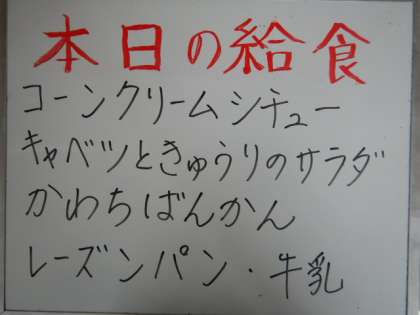 本日の給食
コーンクリームシチュー
キャベツときゅうりのサラダ
かわちばんかん
レーズンパン・牛乳